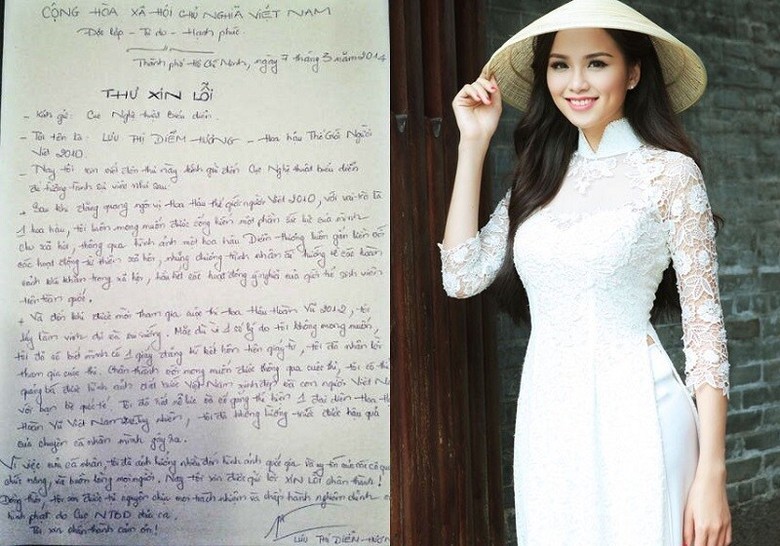 CỘNG HÒA XÃ HỘI CHỦ NGHĨA VIỆT NAM
Độc lập - Tự do - Hạnh phúc
Thành phố Hồ Chí Minh, ngày 7 tháng 3 năm 2014
THƯ XIN LỖI
- Kính gửi: Cục Nghệ thuật biểu diễn.
- Tôi tên là: LƯU THỊ DIỄM HƯƠNG - Hoa hậu Thế Giới Người
Việt 2010
- Nay tôi xin viết đơn thư này kính gửi đến Cục Nghệ thuật biểu diễn
để tường trình sự việc như sau:
+ Sau khi đăng quang ngôi vị Hoa Hậu thế giới người Việt 2010, với vai trò là
1 hoa hậu, tôi luôn mong muốn được cống hiến một phần sức bé của mình
cho xã hội, thông qua hình ảnh một hoa hậu Diễm Hương luôn gắn liền với
các hoạt động từ thiện xã hội, những chương trình nhân ái hướng về các hoàn
cảnh khó khăn trong xã hội, hầu hết các hoạt động ý nghĩa của giới trẻ sinh viên
trên toàn quốc.
+ Và đến khi được mời tham gia cuộc thi Hoa Hậu Hoàn Vũ 2012, tôi
lấy làm vinh dự và vui sướng. Mặc dù vì 1 số lý do tôi không mong muốn,
tôi đã có biết mình có 1 giấy đăng kí kết hôn trên giấy tờ, tôi đã nhận lời
tham gia cuộc thi. Chân thành với mong muốn được thông qua cuộc thi, tôi có thể
quảng bá được hình ảnh đất nước Việt Nam xinh đẹp và con người Việt Nam
với bạn bè quốc tế. Tôi đã hết nỗ lực và cố gắng thể hiện 1 đại diện Hoa Hậu
Hoàn Vũ Việt Nam. Tuy nhiên, tôi đã không lường trước được hậu quả
của chuyện cá nhân mình gây ra.
Vì việc của cá nhân, tôi đã ảnh hưởng nhiều đến hình ảnh quốc gia và uy tín của các cơ quan
chức năng, và buồn lòng mọi người. Nay tôi xin được gửi lời XIN LỖI chân thành!
Đồng thời, tôi xin được tự nguyện chịu mọi trách nhiệm và chấp hành nghiêm chỉnh
hình phạt do Cục NTBD đưa ra.
Tôi xin chân thành cảm ơn!
LƯU THỊ DIỄM HƯƠNG